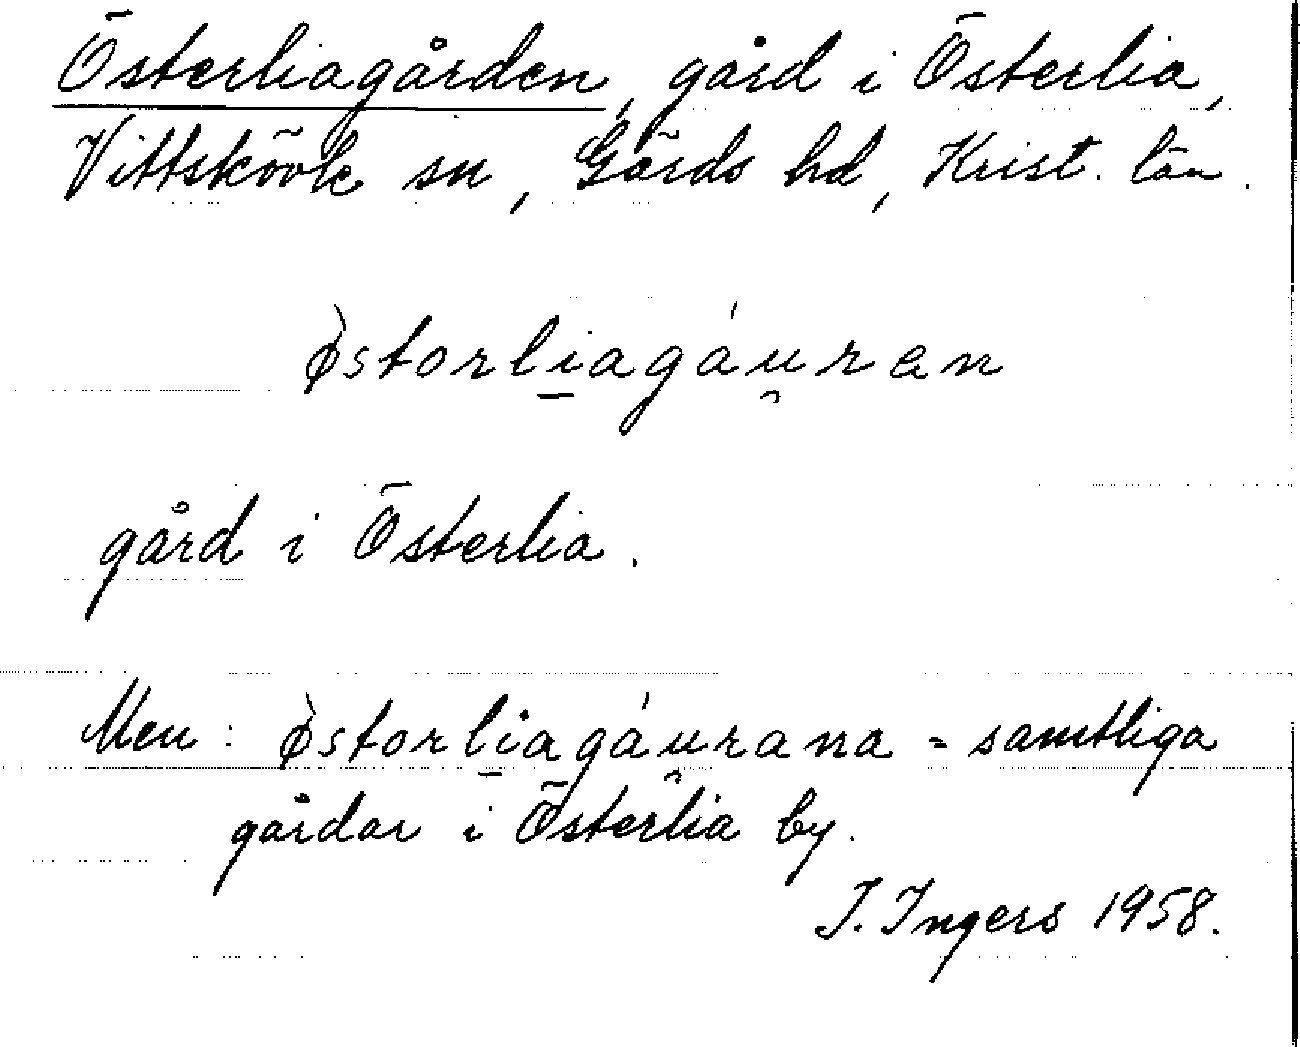 Österliagården, gård i Österlia,
Vittskövle sn, Gärds hd, Krist. län.
ø̀storli̲agáu̯ren
gård i Österlia.
Men: ø̀storli̲agáu̯rana = samtliga
gårdar i Österlia by.
I. Ingers 1958.